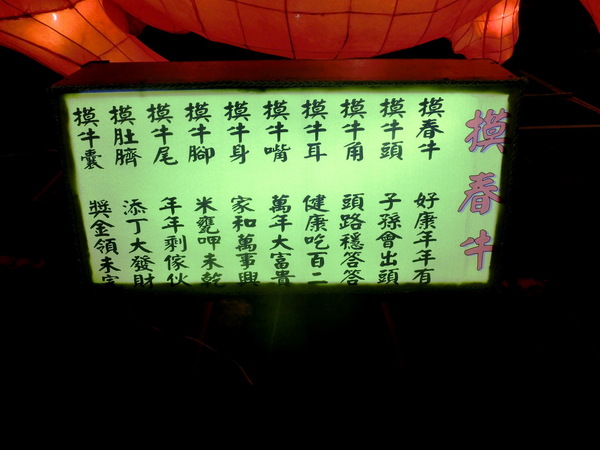 摸春牛
摸春牛 好康年年有
摸牛頭 子孫會出頭
摸牛角 頭路穩答答
摸牛耳 健康吃百二
摸牛嘴 萬年大富貴
摸牛身 家和萬事興
摸牛腳 米甕呷未乾
摸牛尾 年年剩傢伙
摸肚臍 添丁大發財
摸牛囊 獎金領未完